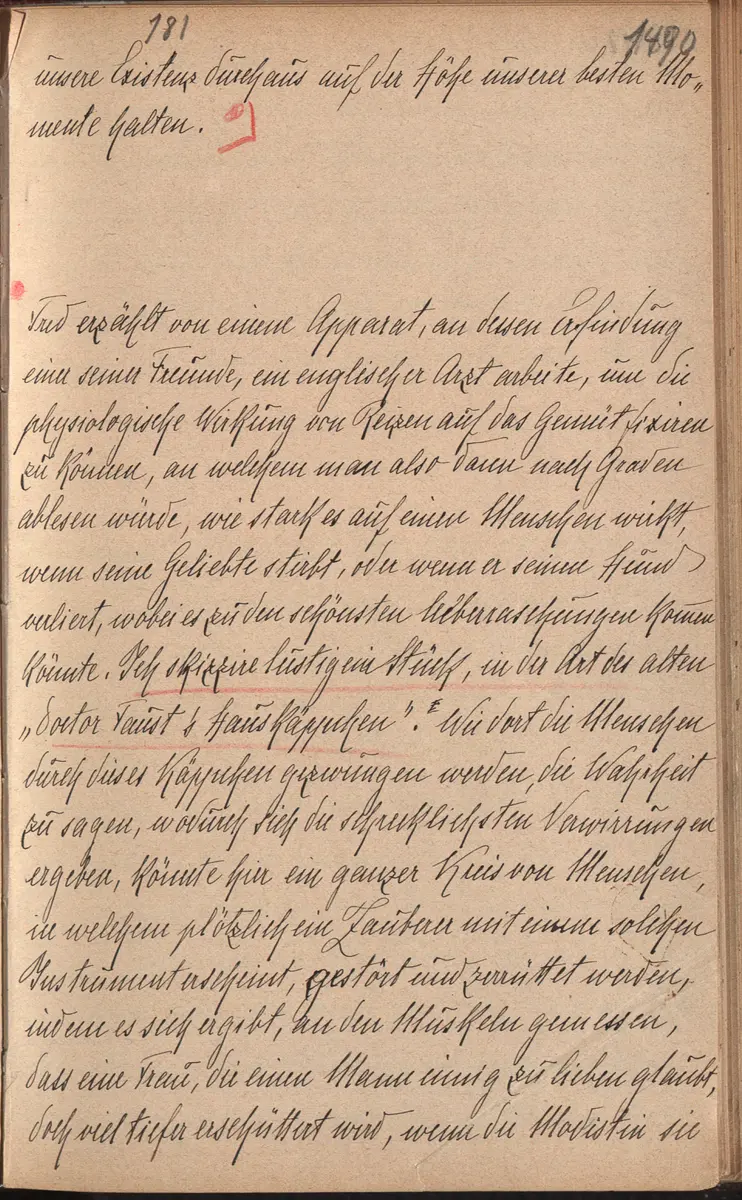 181
1890
unsere Existenz durchaus auf der Höhe unserer besten Mo„
mente halten.
Fred erzählt von einem Apparat, an dessen Erfindung
einer seiner Freunde, ein englischer Arzt arbeite, um die
physiologische Wirkung von Reizen auf das Gemüt fixiren
zu können, an welchem man also dann nach Graden
ablesen würde, wie stark es auf einen Menschen wirkt,
wenn seine Geliebte stirbt, oder wenn er seinen Hund
verliert, wobei es zu den schönsten Ueberraschungen komen
könnte. Ich skizzire lustig ein Stück, in der Art des alten
„Doctor Faust's Hauskäppchen". Wie dort die Menschen
durch dieses Käppchen gezwungen werden, die Wahrheit
zu sagen, wodurch sich die schrecklichsten Verwirrungen
ergeben, könnte hier ein ganzer Kreis von Menschen,
in welchem plötzlich ein Zauberer mit einem solchen
Instrument erscheint, gestört und zerrüttet werden,
indem es sich ergibt, an den Muskeln gemessen,
dass eine Frau, die einen Mann innig zu lieben glaubt,
doch viel tiefer erschüttert wird, wenn die Modistin sie